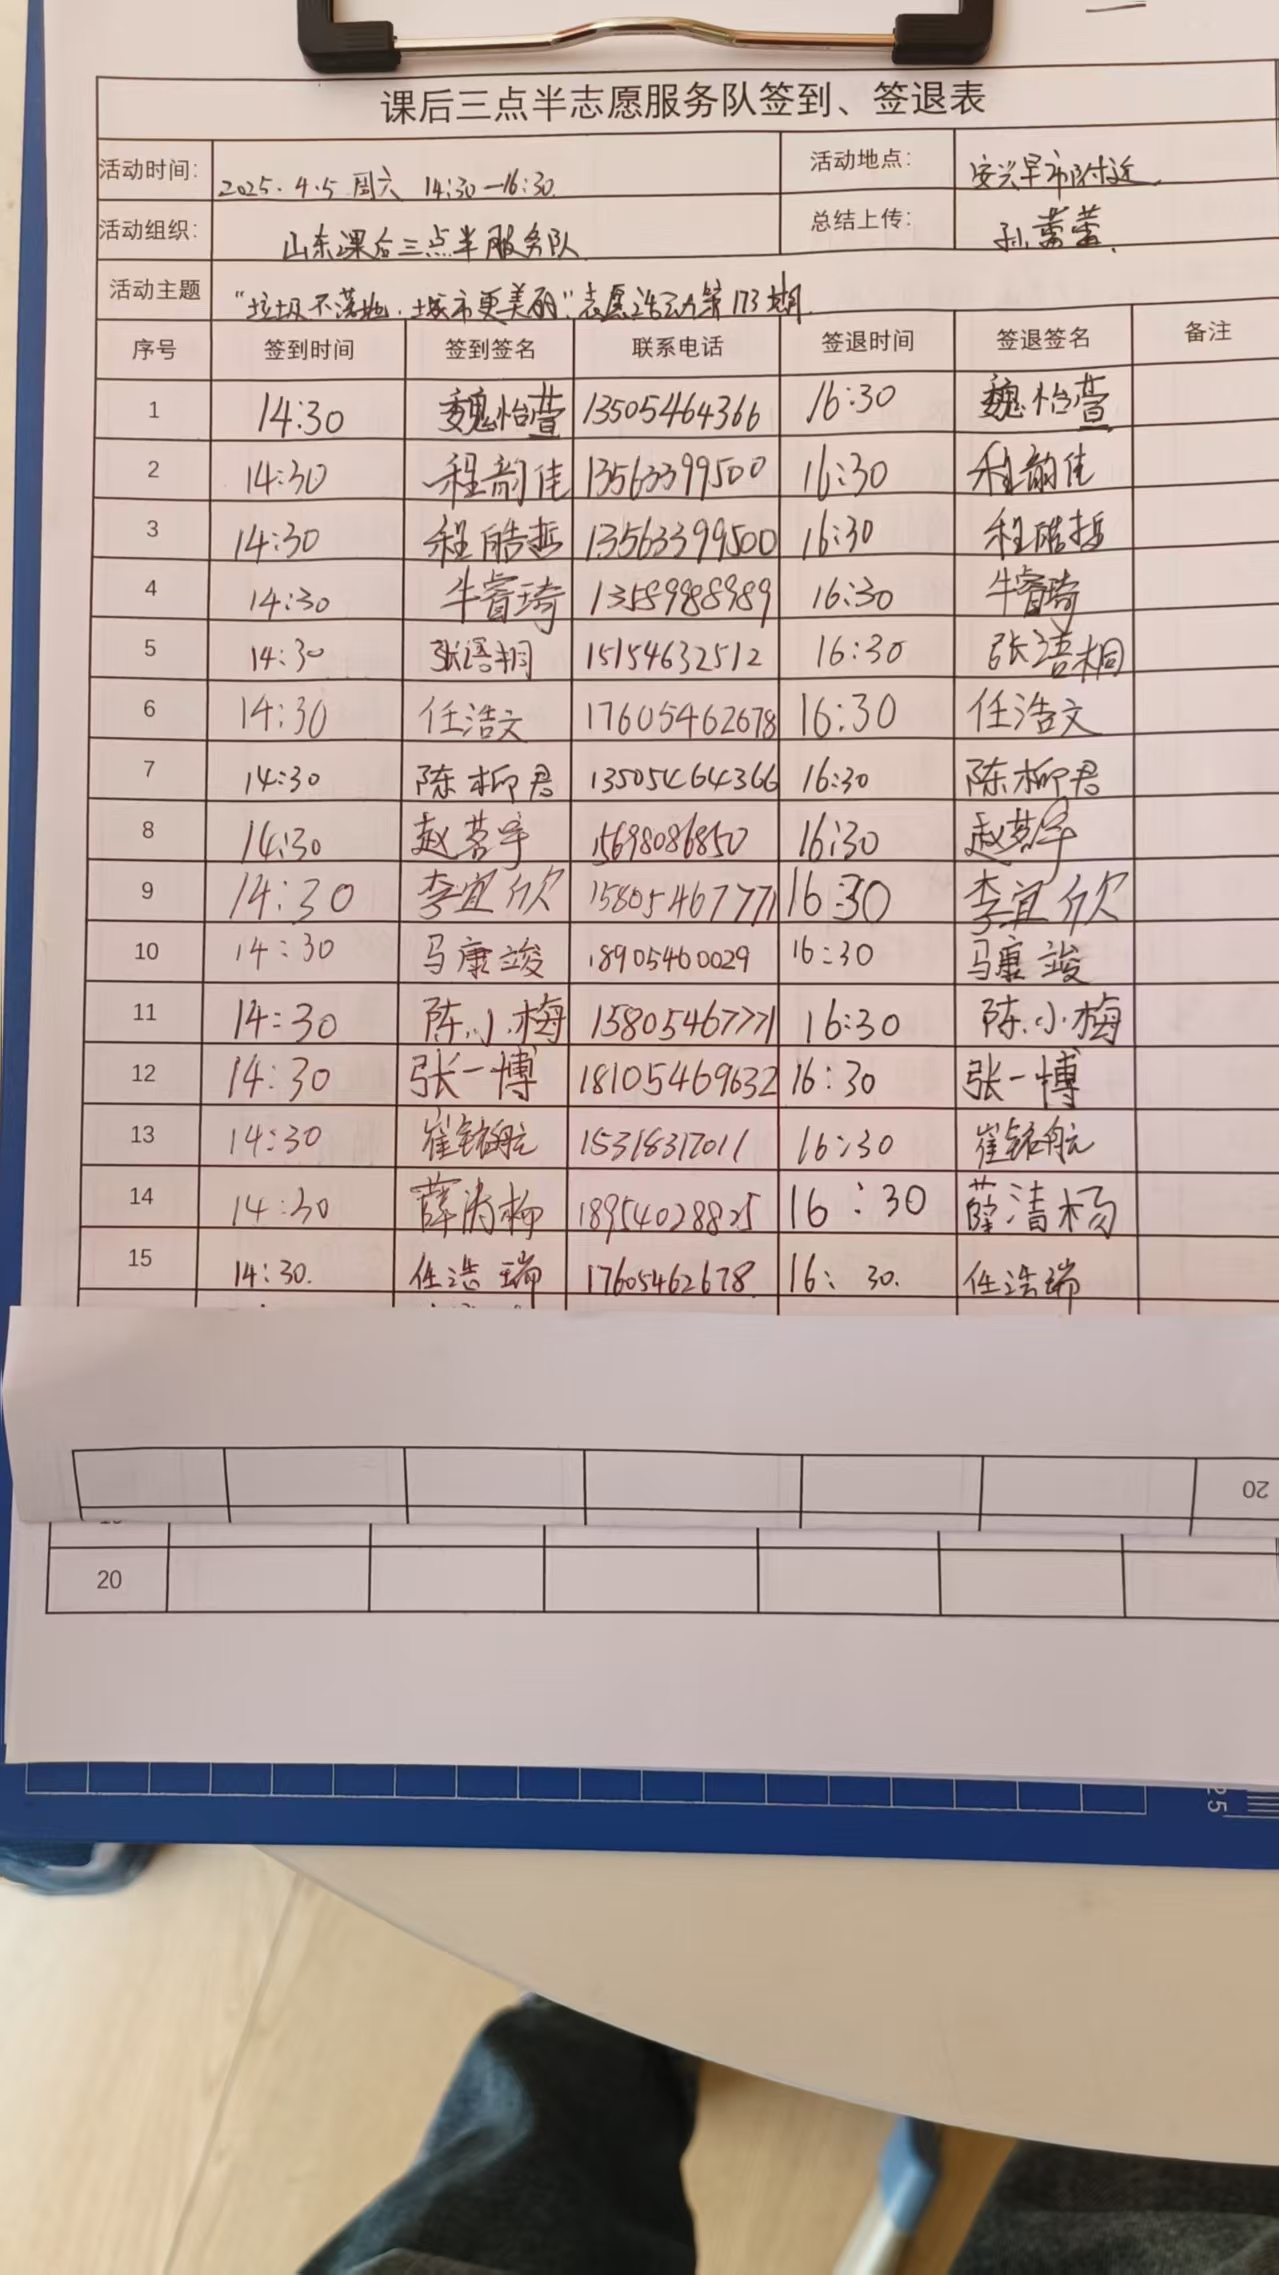 课后三点半志愿服务队签到、签退表
活动时间: 2025.4.5 周六 14:30—16:30 活动地点: 安兴早市附近.
活动组织: 山东课后三点半服务队 总结上传: 孙蕾蕾.
活动主题 "垃圾不落地.城市更美丽"志愿活动第173期.
序号 签到时间 签到签名 联系电话 签退时间 签退签名 备注
1 14:30 魏怡萱 13505464366 16:30 魏怡萱
2 14:30 程韵佳 13563399500 16:30 程韵佳
3 14:30 程皓哲 13563399500 16:30 程皓哲
4 14:30 牛睿琦 13589988989 16:30 牛睿琦
5 14:30 张语桐 15154632512 16:30 张语桐
6 14:30 任浩文 17605462678 16:30 任浩文
7 14:30 陈柳君 13505464366 16:30 陈柳君
8 14:30 赵茗宇 15698086850 16:30 赵茗宇
9 14:30 李宜欣 15805467771 16:30 李宜欣
10 14:30 马康竣 18905460029 16:30 马康竣
11 14:30 陈小梅 15805467771 16:30 陈小梅
12 14:30 张一博 18105469632 16:30 张一博
13 14:30 崔铭航 15318317011 16:30 崔铭航
14 14:30 薛清杨 18954028825 16:30 薛清杨
15 14:30. 任浩瑞 17605462678 16:30. 任浩瑞
20
20
25